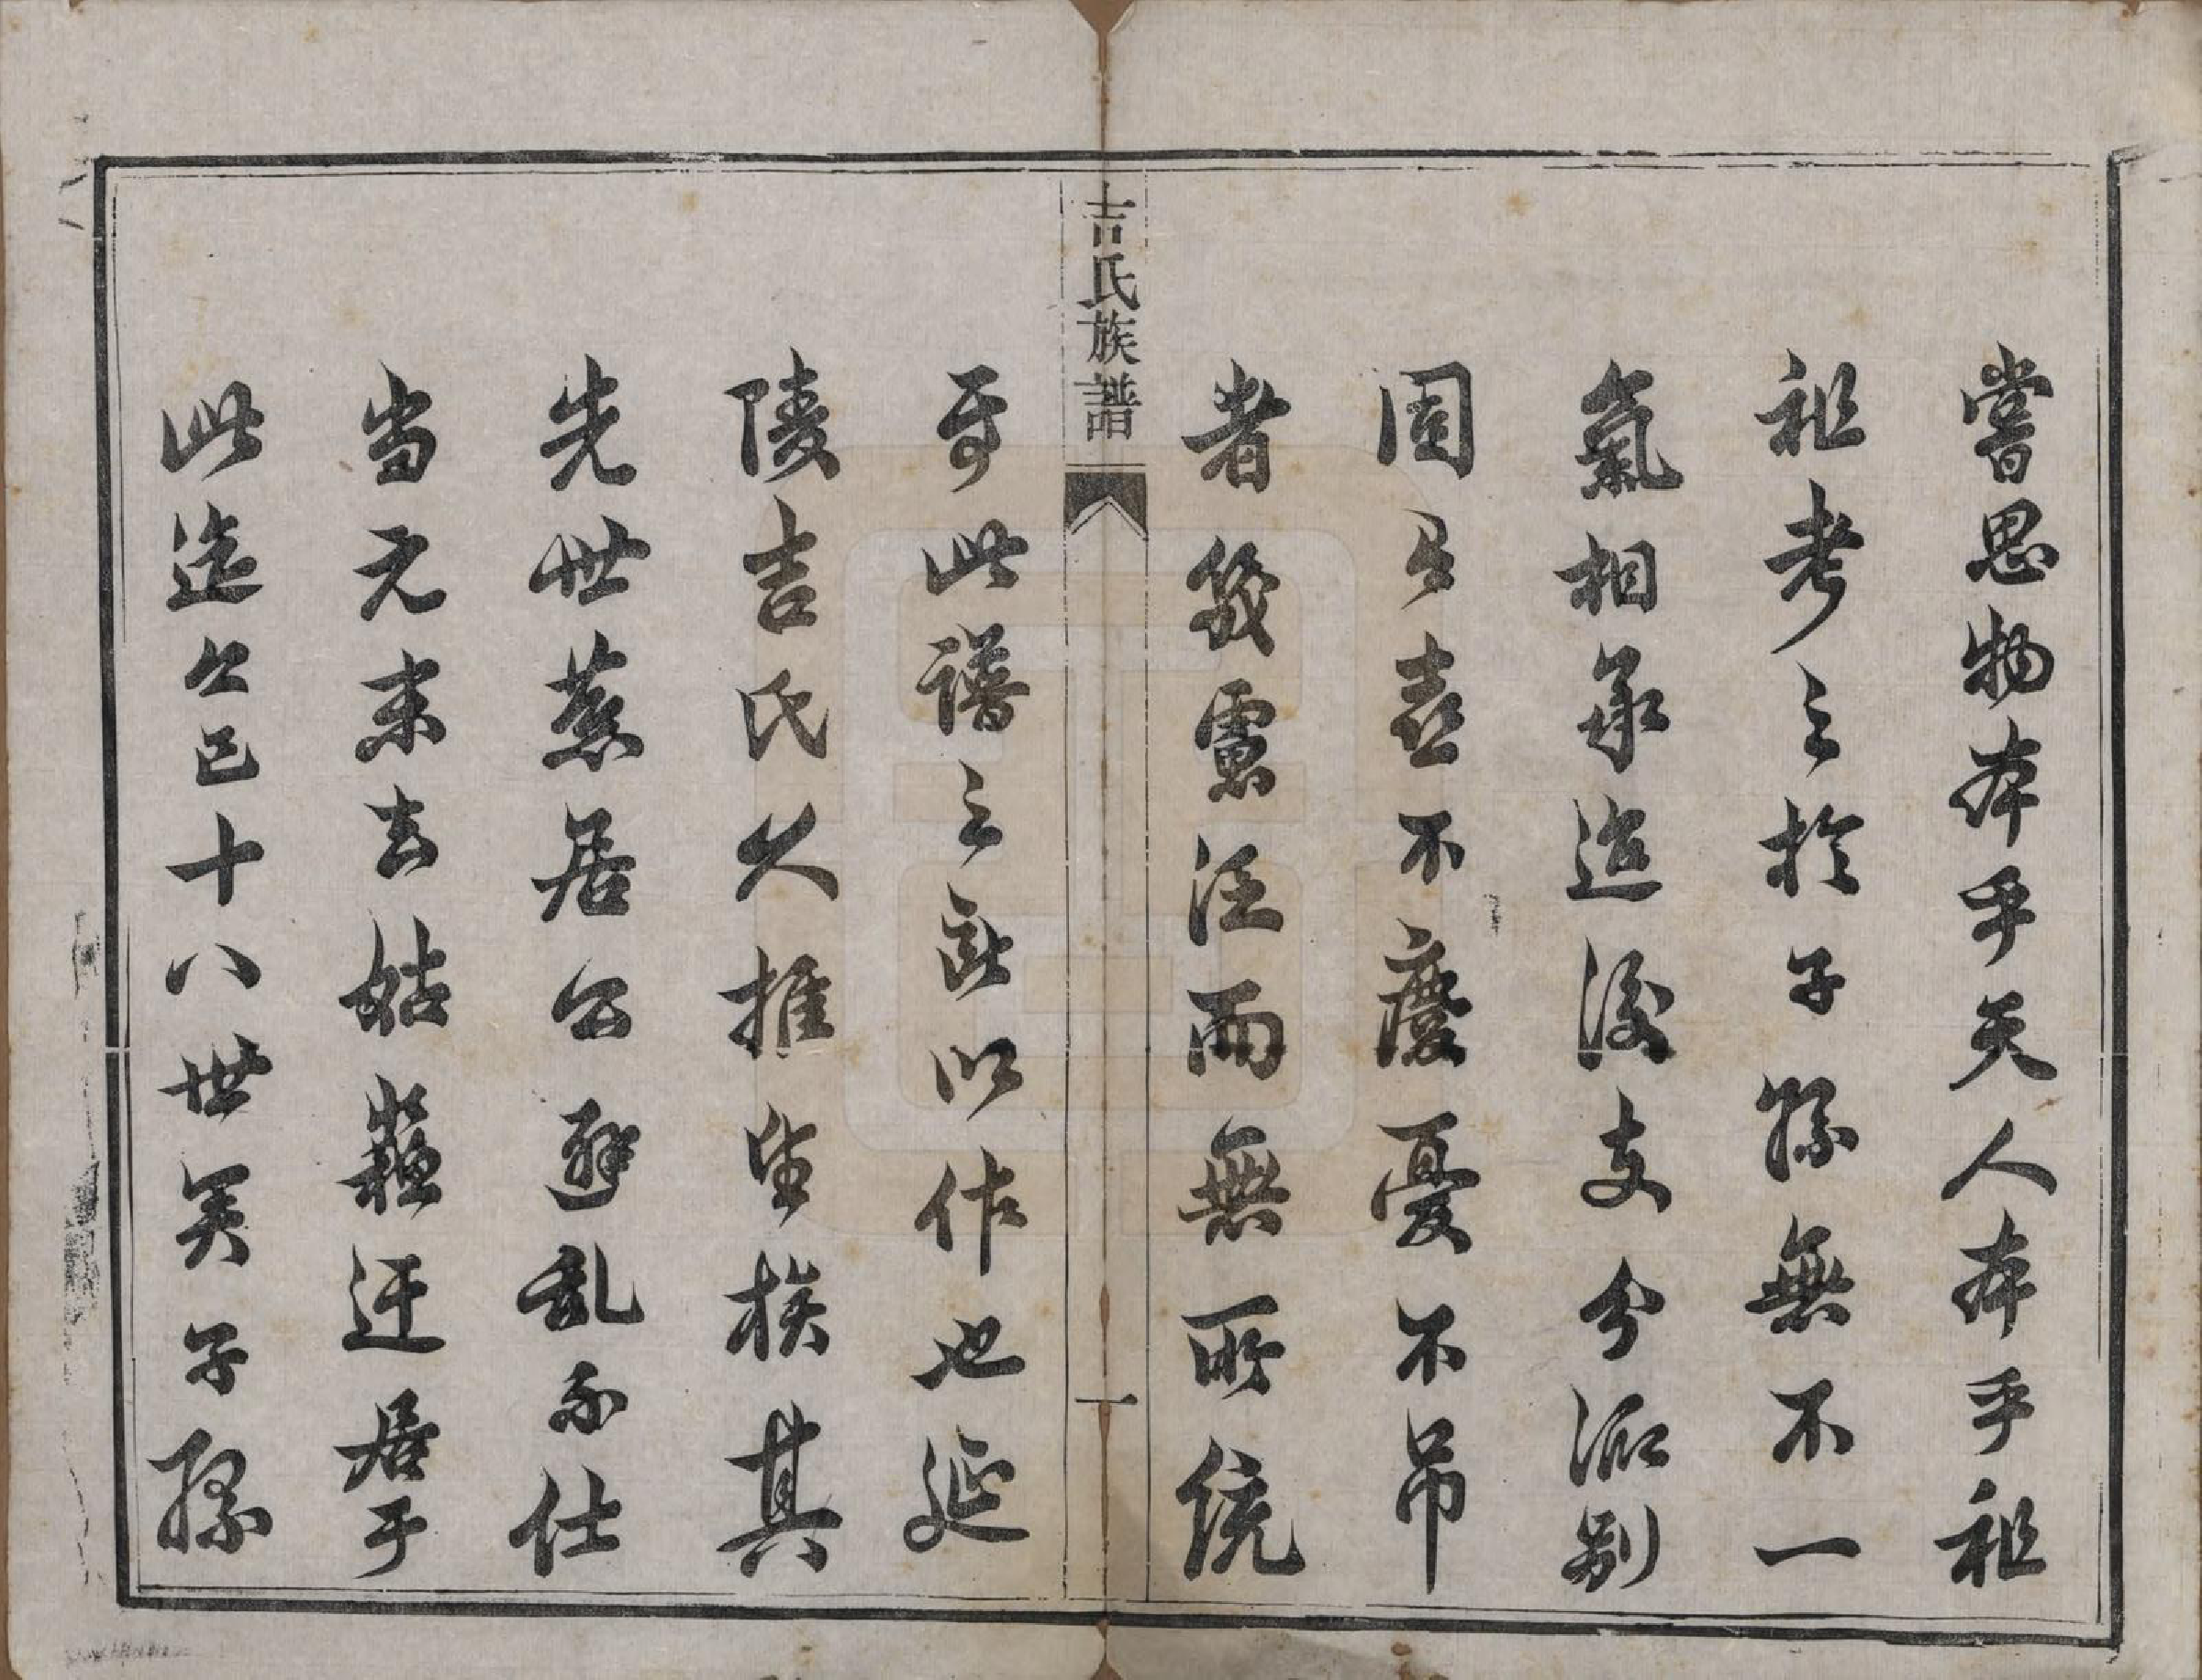 嘗思物本乎天人本乎祖
祖考之於子孫無不一
氣相承迨後支分派别
固有喜不慶憂不吊
者幾處泛而無所統
耳此譜之所以作也延
陵吉氏久推望族其
先世蒸居公避乱不仕
当元末去姑蘓迁居于
此迄今已十八世矣子孫
吉氏族譜
一